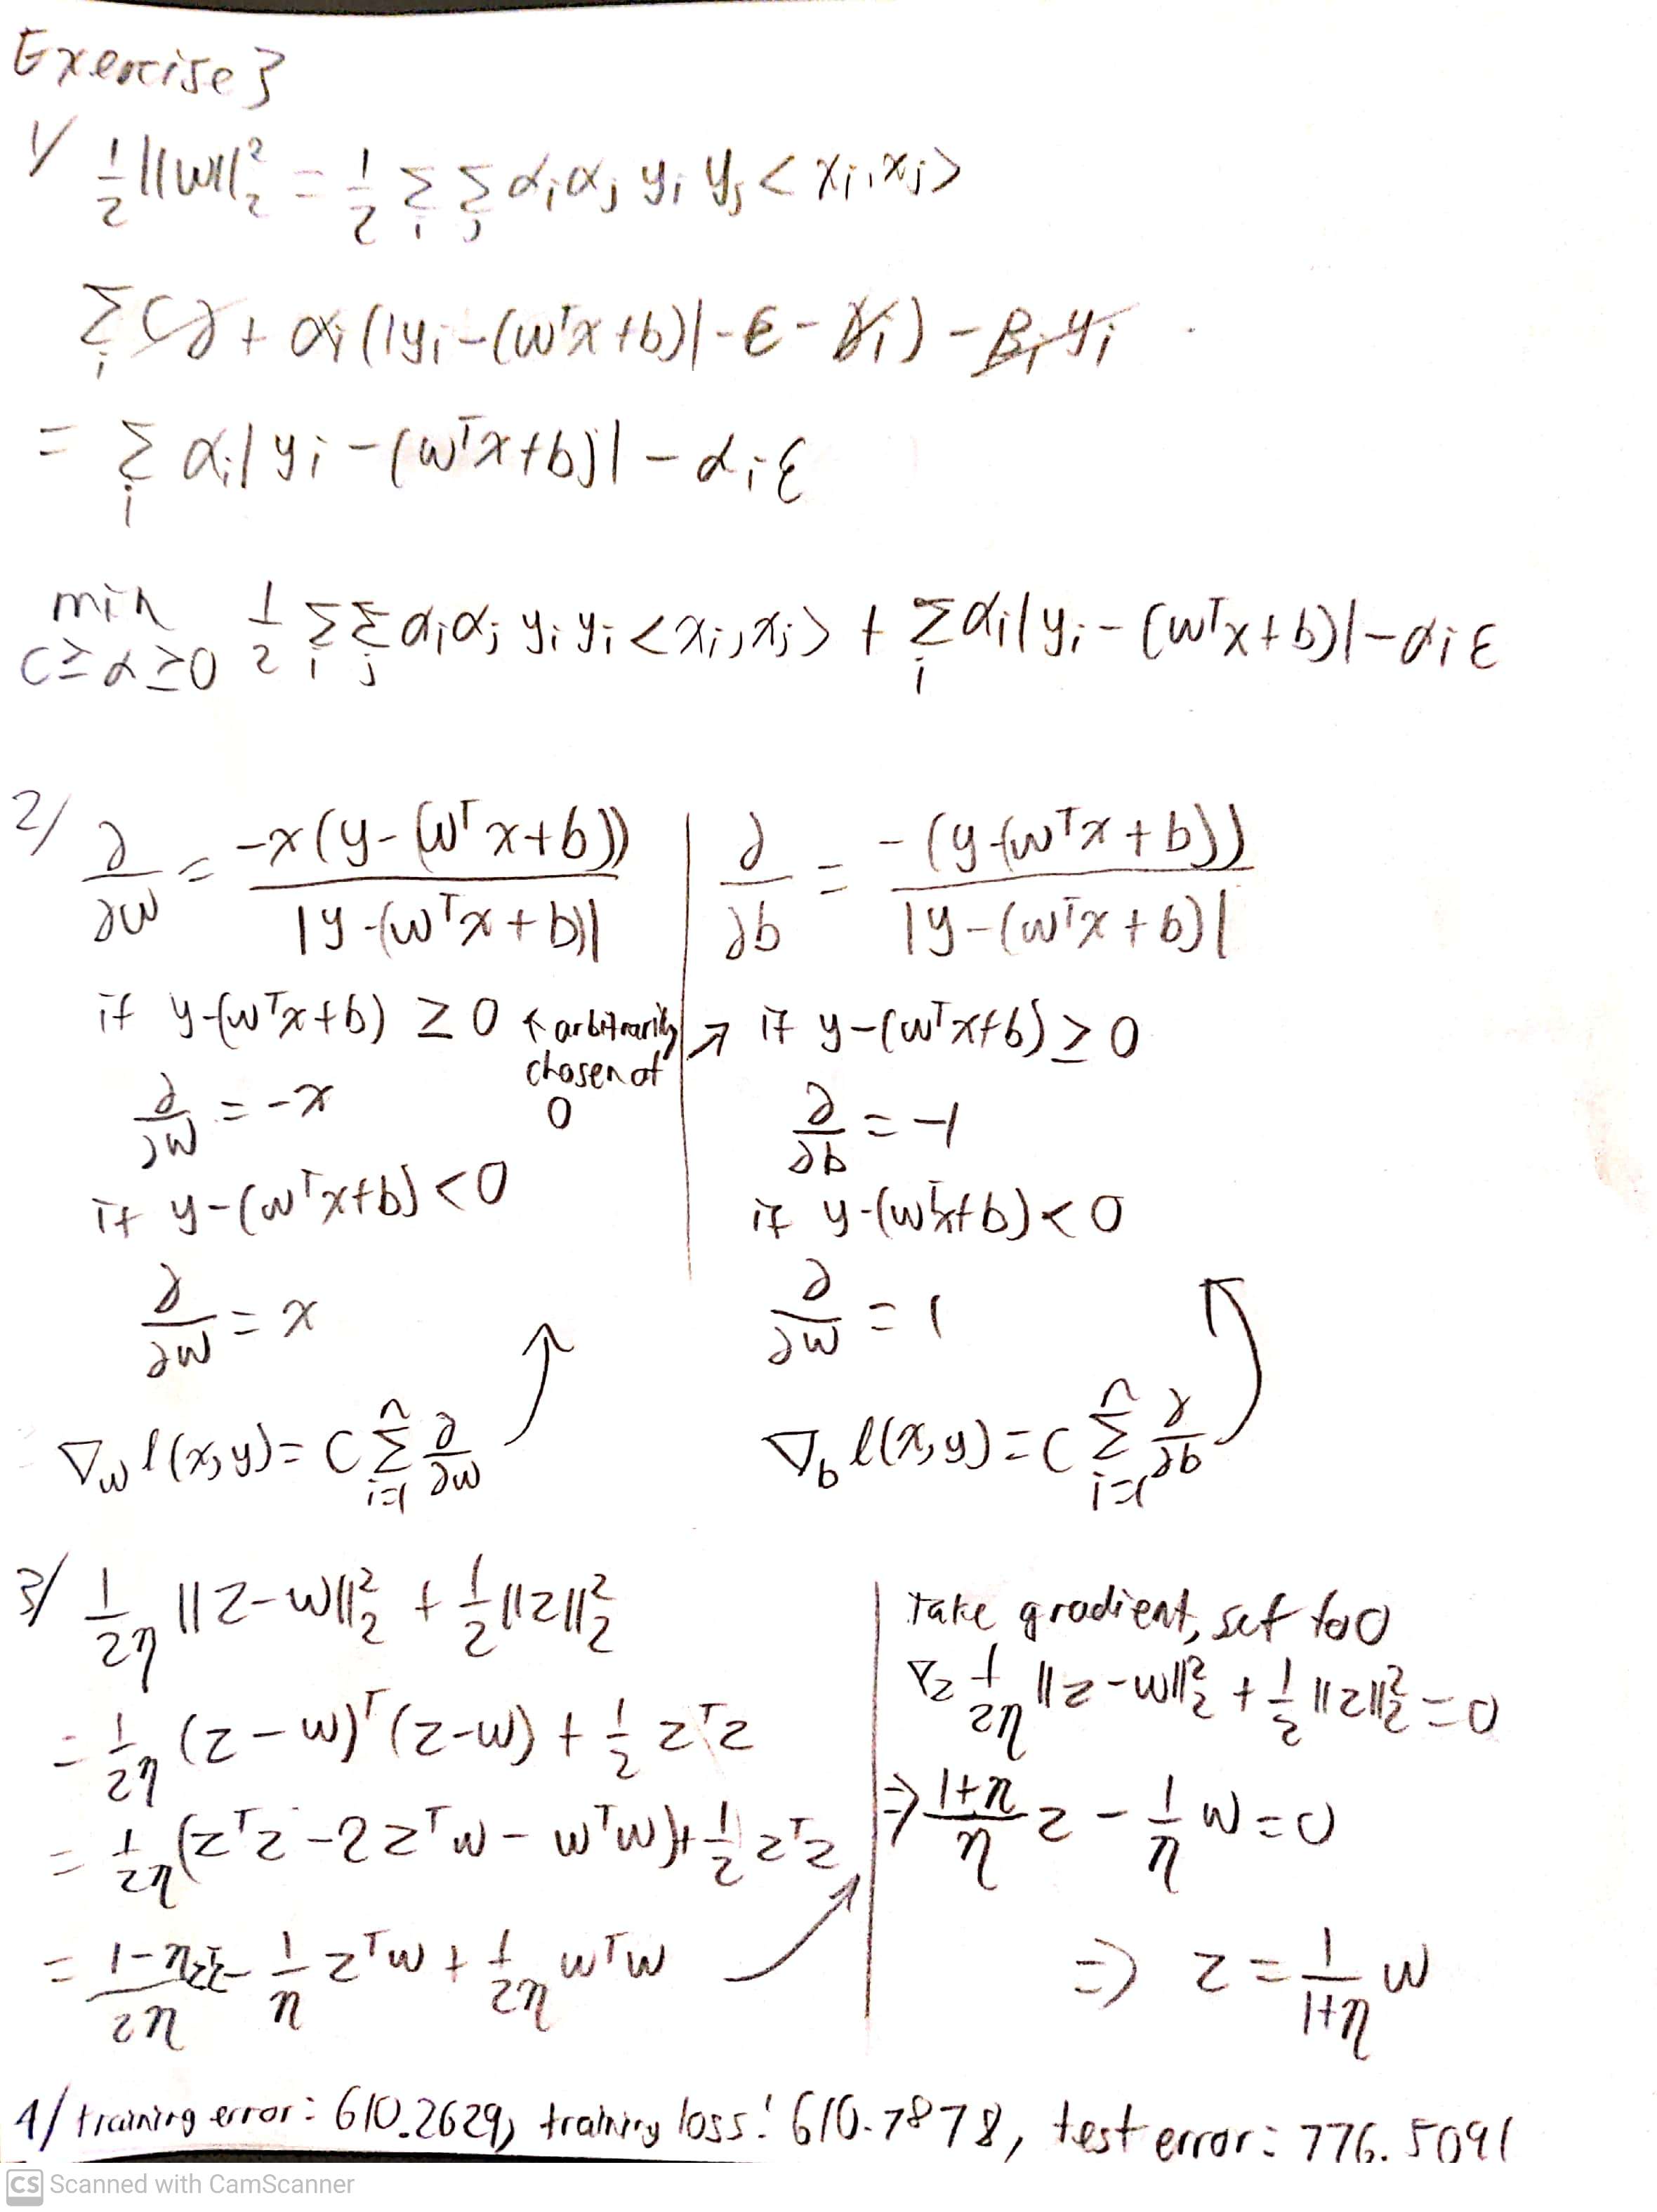 Exercise 3
1/ ½||w||₂² = ½ Σᵢ Σⱼ αᵢαⱼ yᵢ yⱼ < xᵢ, xⱼ>
+ αᵢ(|yᵢ - (wᵀx + b)| - ε - γᵢ) -
= Σᵢ αᵢ|yᵢ - (wᵀx+b)| - αᵢε
min C≥α≥0 ½ Σᵢ Σⱼ αᵢαⱼ yᵢ yᵢ <xᵢ, xⱼ> + Σᵢ αᵢ|yᵢ - (wᵀx+b)| - αᵢε
2/ ∂/∂w = -x(y-(wᵀx+b)) / |y-(wᵀx+b)|
if y-(wᵀx+b) ≥ 0 ← arbitrarily chosen at 0 ↗
∂/∂w = -x
if y-(wᵀx+b) < 0
∂/∂w = x
∇w l(x,y) = C Σᵢ₌₁ⁿ ∂/∂w
∂/∂b = -(y-(wᵀx+b)) / |y-(wᵀx+b)|
if y-(wᵀx+b) ≥ 0
∂/∂b = -1
if y-(wᵀx+b) < 0
∂/∂w = 1
∇b l(x,y) = C Σᵢ₌₁ⁿ ∂/∂b
3/ 1/2η ||z-w||₂² + ½||z||₂²
= 1/2η (z-w)ᵀ(z-w) + ½ zᵀz
= 1/2η (zᵀz - 2zᵀw - wᵀw) + ½ zᵀz
= 1-η/2η zᵀz - 1/η zᵀw + 1/2η wᵀw
Take gradient, set to 0
∇z 1/2η ||z-w||₂² + ½||z||₂² = 0
⇒ 1+η/η z - 1/η w = 0
⇒ z = 1/1+η w
4/ training error: 610.2629, training loss: 610.7878, test error: 776.5091
CS Scanned with CamScanner